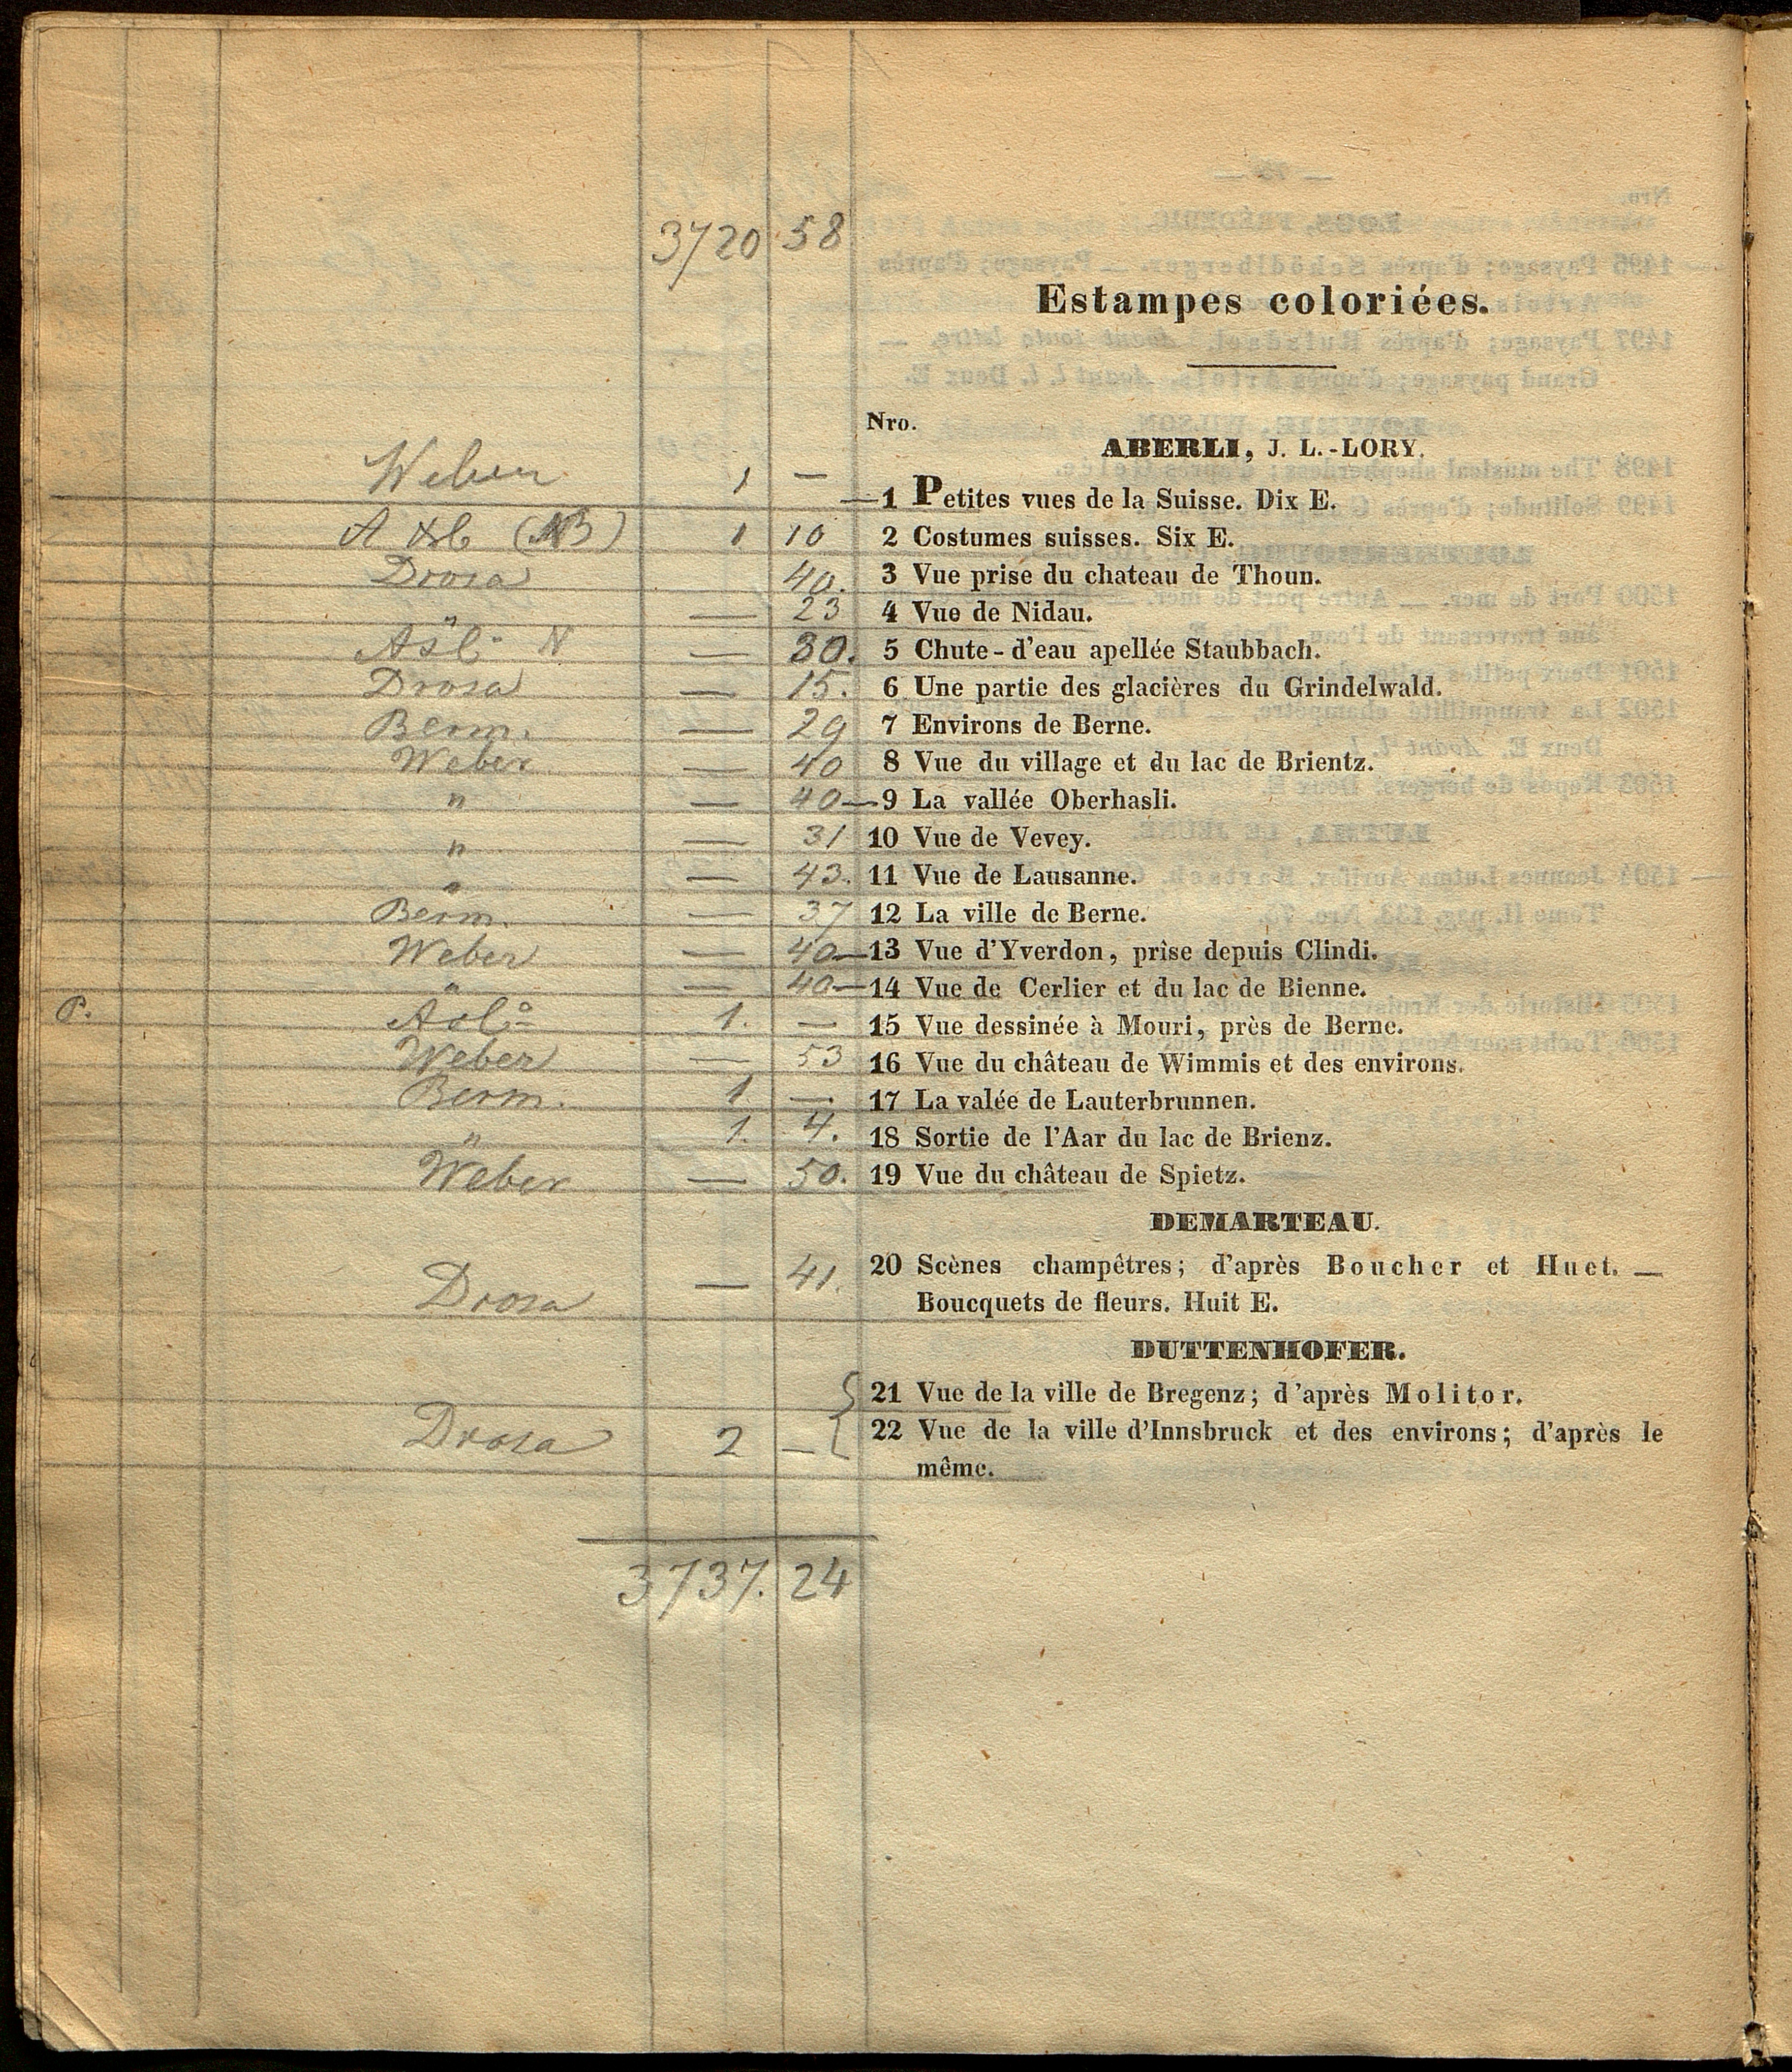 3720 58
Estampes coloriées.
Nro.
ABERLI, J. L.-LORY.
Weber 1 — —1 Petites vues de la Suisse. Dix E.
1 10 2 Costumes suisses. Six E.
Drosa 40. 3 Vue prise du chateau de Thoun.
" — 23 4 Vue de Nidau.
Asl N — 30. 5 Chute-d'eau apellée Staubbach.
Drosa — 15. 6 Une partie des glacières du Grindelwald.
Berm. — 29 7 Environs de Berne.
Weber — 40 8 Vue du village et du lac de Brientz.
" — 40—9 La vallée Oberhasli.
" — 31 10 Vue de Vevey.
" — 43. 11 Vue de Lausanne.
Berm. — 37 12 La ville de Berne.
Weber — 40—13 Vue d'Yverdon, prise depuis Clindi.
" — 40—14 Vue de Cerlier et du lac de Bienne.
P. Asl: 1. — 15 Vue dessinée à Mouri, près de Berne.
Weber — 53 16 Vue du château de Wimmis et des environs.
Berm. 1 — 17 La valée de Lauterbrunnen.
" 1. 4. 18 Sortie de l'Aar du lac de Brienz.
Weber — 50. 19 Vue du château de Spietz.
DEMARTEAU.
Drosa — 41. 20 Scènes champêtres; d'après Boucher et Huet. —
Boucquets de fleurs. Huit E.
DUTTENHOFER.
21 Vue de la ville de Bregenz; d'après Molitor.
Drosa 2 — 22 Vue de la ville d'Innsbruck et des environs; d'après le
même.
3737. 24